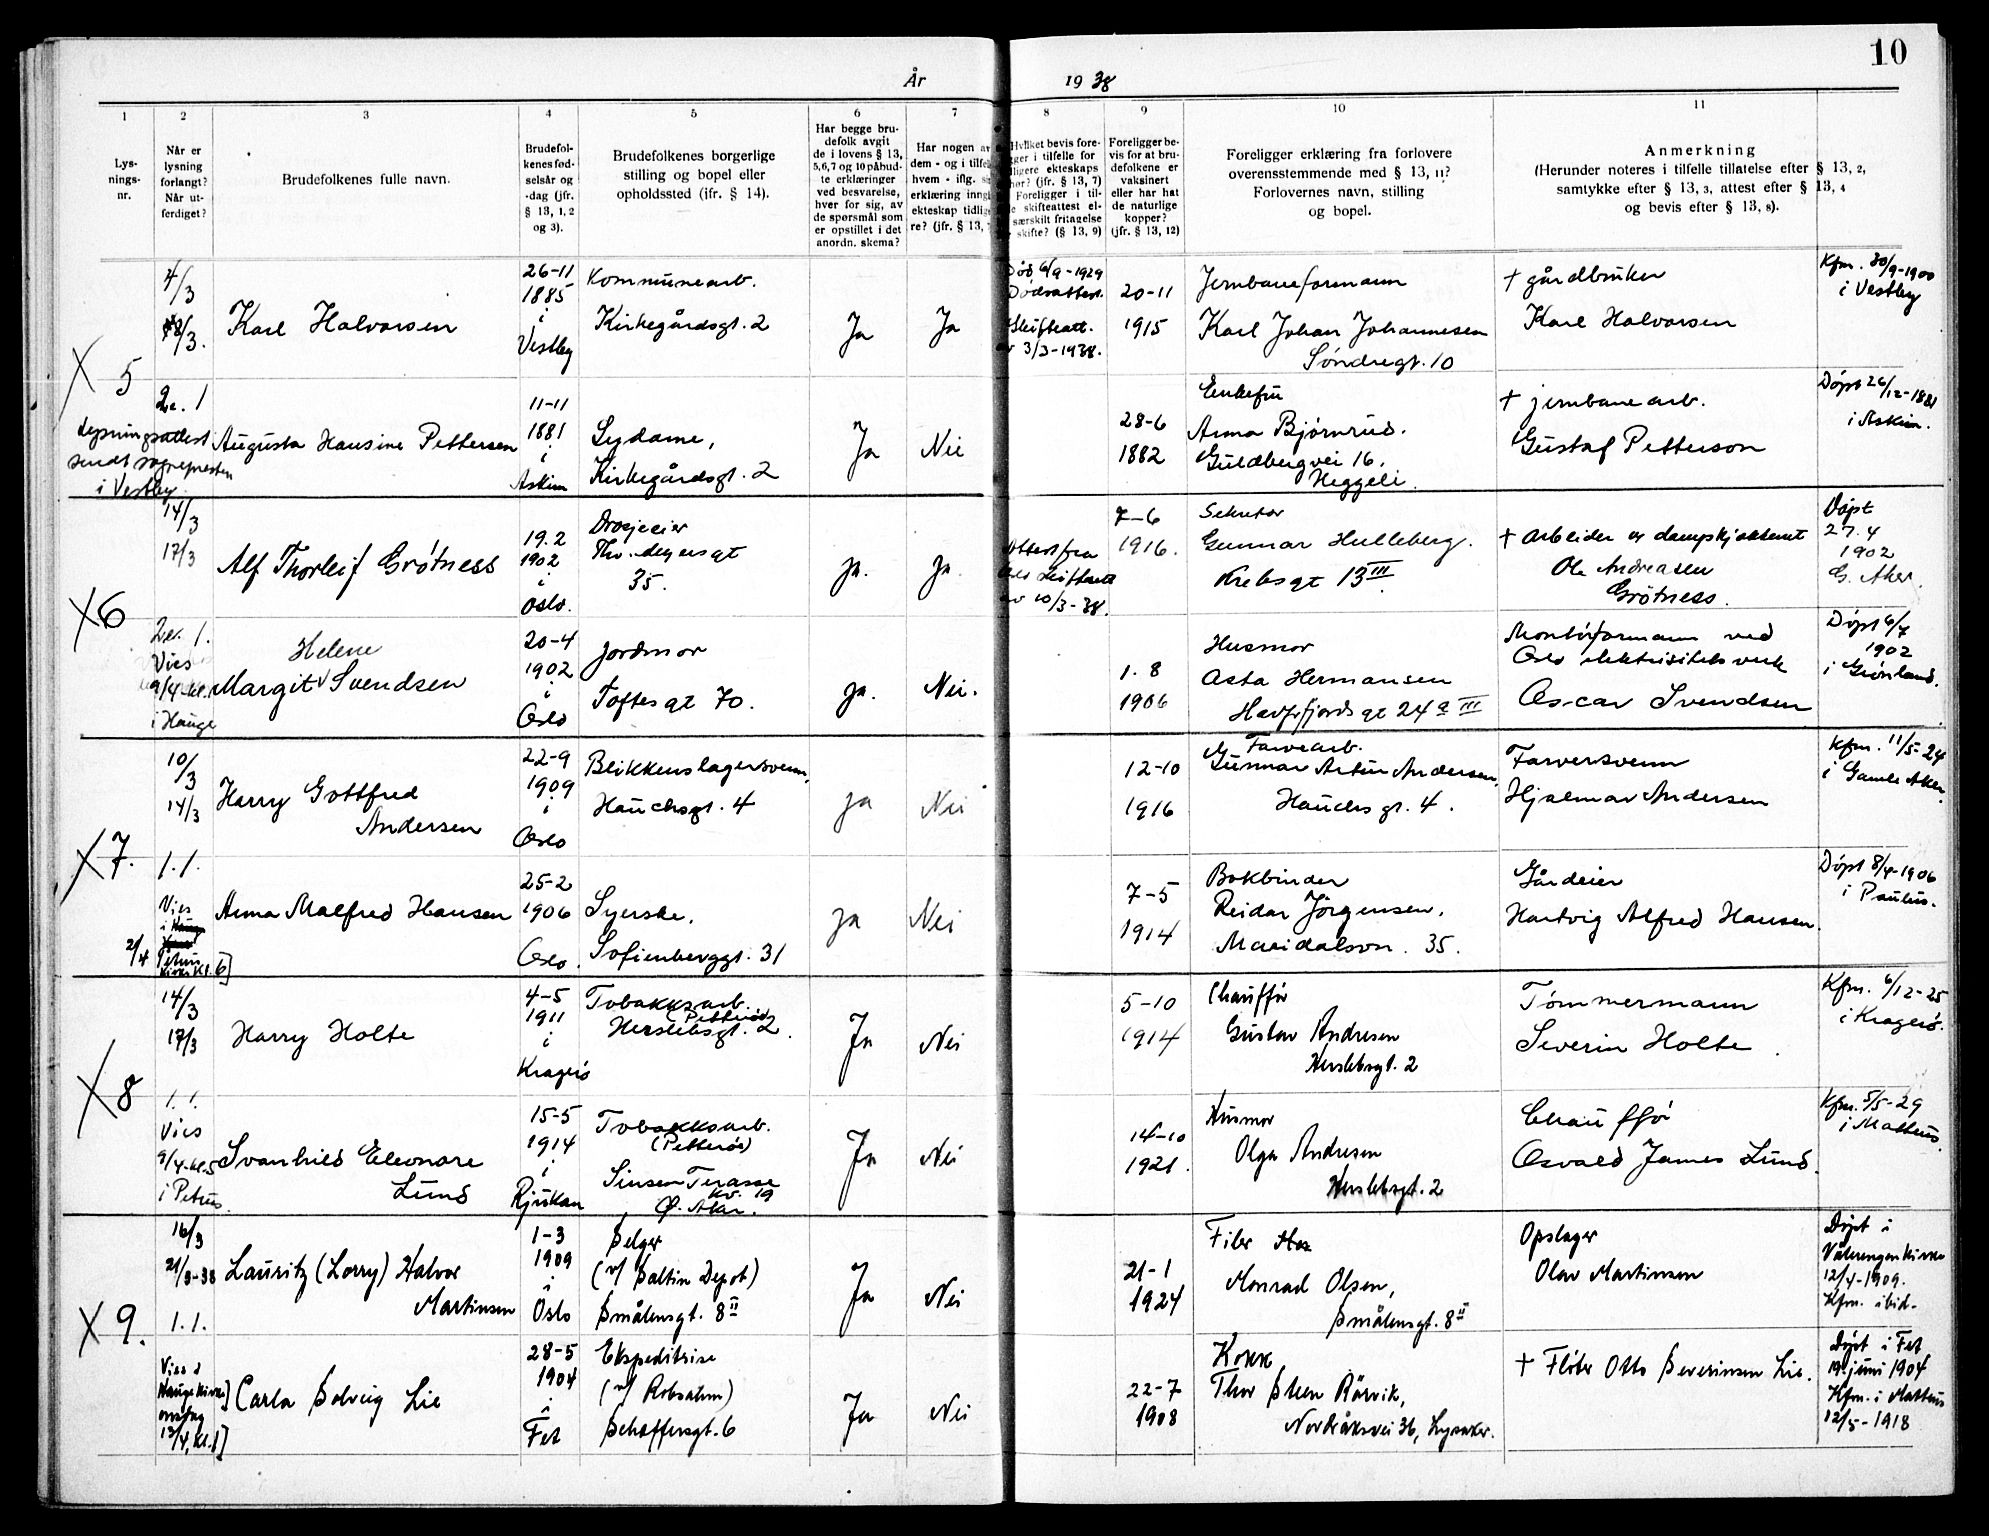 10
År 1938
1 2 3 4 5 6 7 8 9 10 11
Lys-
nings-
nr.
Når er
lysning
forlangt?
Når ut-
ferdiget?
Brudefolkenes fulle navn.
Brudefol-
kenes fød-
selsår og
-dag (jfr.
§ 13, 1, 2
og 3).
Brudefolkenes borgerlige
stilling og bopel eller
opholdssted (jfr. § 14).
Har begge bru-
defolk avgit
de i lovens § 13,
5,6,7 og 10 påbud-
te erklæringer
ved besvarelse,
hver for sig, av
de spørsmål som
er opstillet i det
anordn. skema?
Har nogen av
dem - og i tilfel
hvem - iflg. s
erklæring inng
ekteskap tidlig
re? (jfr. § 13, 7
Hvilket bevis fore-
gger i tilfelle for
dligere ekteskaps
hør? (jfr. § 13, 7)
Foreligger i til-
le skifteattest el-
særskilt fritagelse
skifte? (§ 13, 9)
Foreligger be-
vis for at bru-
defolkene er
vaksinert
eller har hat
de naturlige
kopper?
(jfr. § 13, 12)
Foreligger erklæring fra forlovere
overensstemmende med § 13, 11?
Forlovernes navn, stilling
og bopel.
Anmerkning
(Herunder noteres i tilfelle tillatelse efter § 13, 2,
samtykke efter § 13, 3, attest efter § 13, 4
og bevis efter § 13, 8).
X 5
4/3
18/3.
Karl Halvorsen
26-11
1885
i
Vestby
Kommunearb.
Kirkegårdsgt. 2
Ja
Ja
Død 6/9-1929
Dødsattest.
Skifteatt.
3/3-1938.
20-11
1915
Jernbaneformann
Karl Johan Johannesen
Søndregt. 10
+ gårdbruker
Karl Halvorsen
Kfm. 30/9-1900
i Vestby
2e. 1
Lysningsattest
sendt sognepresten
i Vestby.
Augusta Hansine Pettersen
11-11
1881
i
Askim
Sydame,
Kirkegårdsgt. 2
Ja
Nei
28-6
1882
Enkefru
Anna Bjørnrud.
Guldbergvei 16.
Heggeli.
+ jernbanearb.
Gustaf Petterson
Døpt 26/12-1881
i Askim.
X 6
14/3
17/3
Alf Thorleif Grøtness
19.2
1902
i
Oslo.
Drosjeeier
Thv. Meyersgt
35.
Ja.
Ja.
Attest fra
Oslo Skifterett
av 10/3-38.
7-6
1916.
Sekretær
Gunnar Hulleberg.
Krebsgt 13 III
+ Arbeider v. dampskj.
Ole Andreasen
Grøtness.
Døpt
27.4
1902
G. Aker.
2e. 1.
Vies
9/4-kl.
i Hauge
Helene
Margit Svendsen
20-4
1902
i
Oslo
Jordmor
Toftesgt 70.
Ja.
Nei.
1. 8
1906
Husmor
Asta Hermansen
Havsfjordsgt 24a III
Montørformann ved
Oslo elektrisitetsverk
Oscar Svendsen
Døpt 6/7
1902
i Grønland.
X 7.
10/3
14/3
Harry Gottfred
Andersen
22-9
1909
i
Oslo
Blikkenslagersvenn,
Hauchsgt. 4
Ja
Nei
12-10
1916
Farvearb.
Gunnar Artur Andersen,
Hauchsgt. 4.
Farversvenn
Hjalmar Andersen
Kfm. 11/5-24
i Gamle Aker.
1.1.
Vies
i
2/4 Petrus
kirke kl. 6]
Anna Malfred Hansen
25-2
1906
Oslo.
Syerske.
Sofienberggt. 31
Ja
Nei
7-5
1914
Bokbinder
Reidar Jørgensen,
Maridalsvn. 35.
Gårdeier
Hartvig Alfred Hansen.
Døpt 8/4-1906
i Paulus.
X 8
14/3
17/3
Harry Holte
4-5
1911
i
Kragerø
Tobakksarb.
(Petterøe)
Herslebsgt. 2.
Ja
Nei
5-10
1914
Chauffør
Gustav Andresen
Herslebsgt. 2
Tømmermann
Severin Holte.
Kfm. 6/12-25
i Kragerø.
1.1.
Vies
9/4-kl.5
i Petrus.
Svanhild Eleonore
Lund
15-5
1914
i
Rjukan
Tobakksarb.
(Petterøe)
Sinsen Terasse
kv. 19
Ø. Aker.
Ja
Nei
14-10
1921.
Husmor
Olga Andresen
Herslebsgt. 2
Chauffør
Osvald James Lund.
Kfm. 5/5-29
i Matteus.
X 9.
16/3
21/3-38
1.1.
Lauritz (Lorry) Halvor
Martinsen
1-3
1909
i
Oslo
Selger
(v/ Saltin Depot)
Smålensgt. 8 II
Ja
Nei
21-1
1924
Filer
Monrad Olsen,
Smålensgt. 8 II
Opslager
Olav Martinsen
Døpt i
Vålerengen kirke
12/4-1909.
Kfm. ibid.
Vies i
Hauge kirke]
onsdag
13/4, kl. 1]
Carla Solveig Lie
28-5
1904
i
Fet
Ekspeditrise
(v/ Robsahm)
Schøffersgt. 6
Ja
Nei
22-7
1908
Kokk
Thor Steen Rørvik,
Nordråksvei 36, Lysaker.
+ Fløter Otto Severinsen Lie.
Døpt i Fet
19. juni 1904
Kfm. i Matteus
12/5-1918